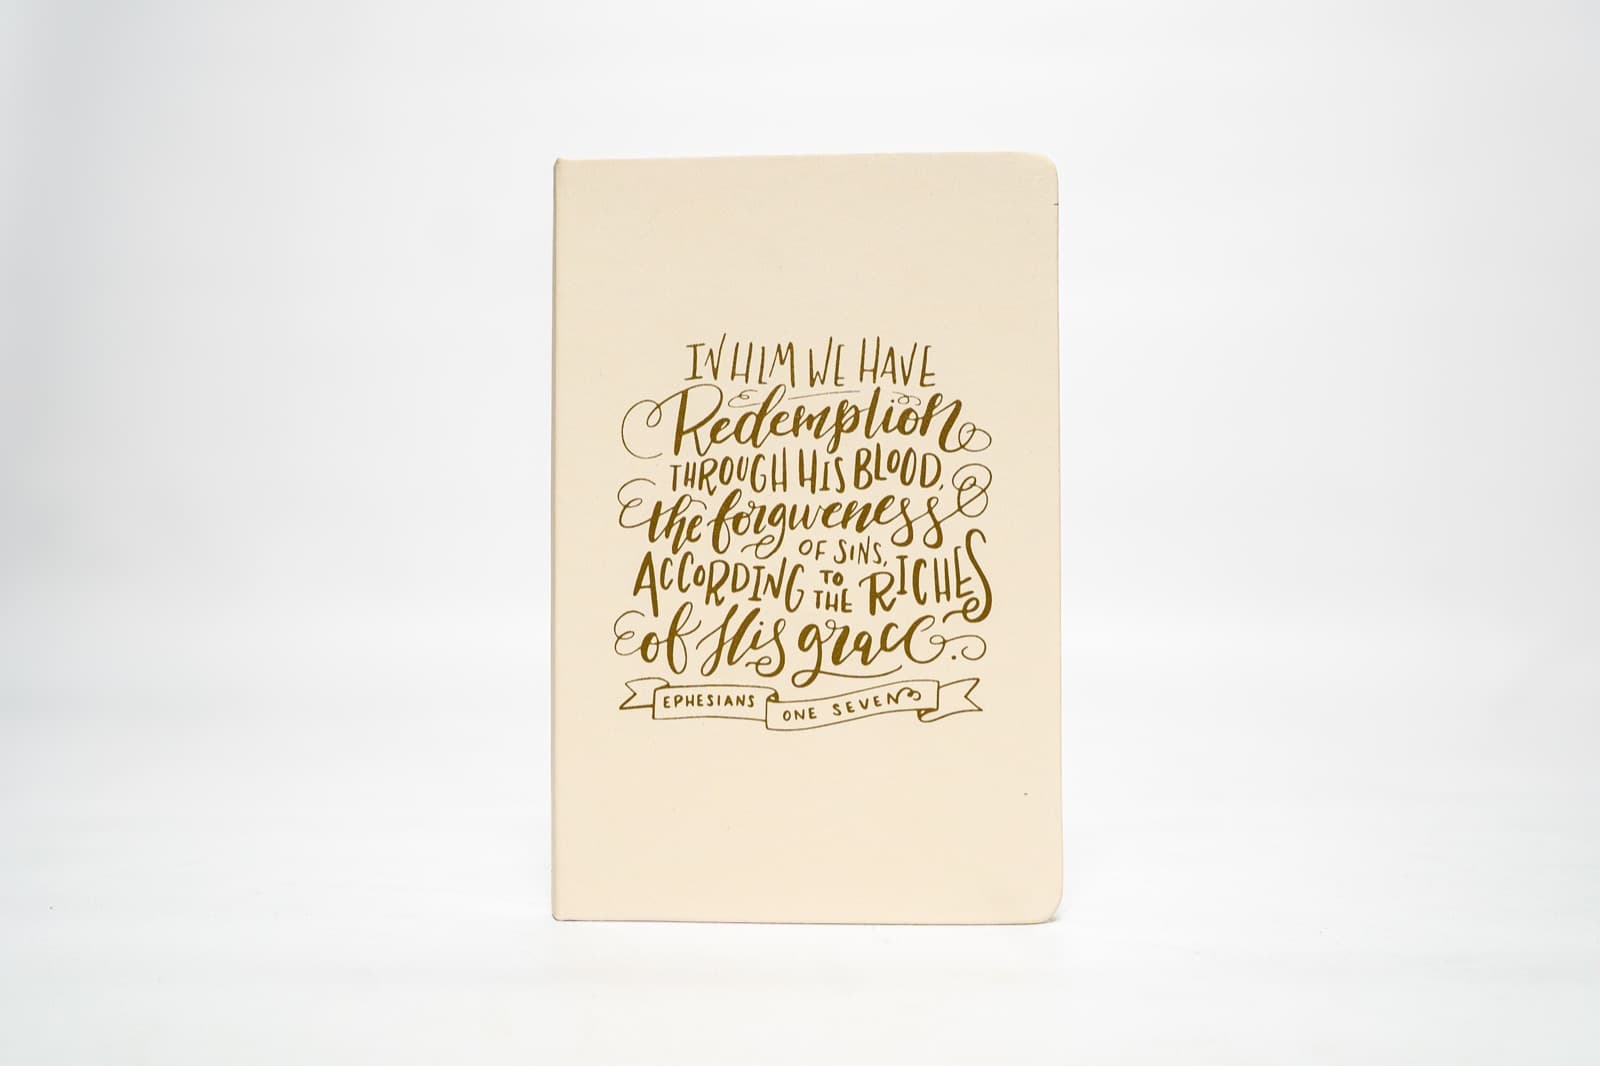 IN HIM WE HAVE
Redemption
THROUGH HIS BLOOD,
the forgiveness
OF SINS,
ACCORDING TO THE RICHES
of His grace.
EPHESIANS ONE SEVEN